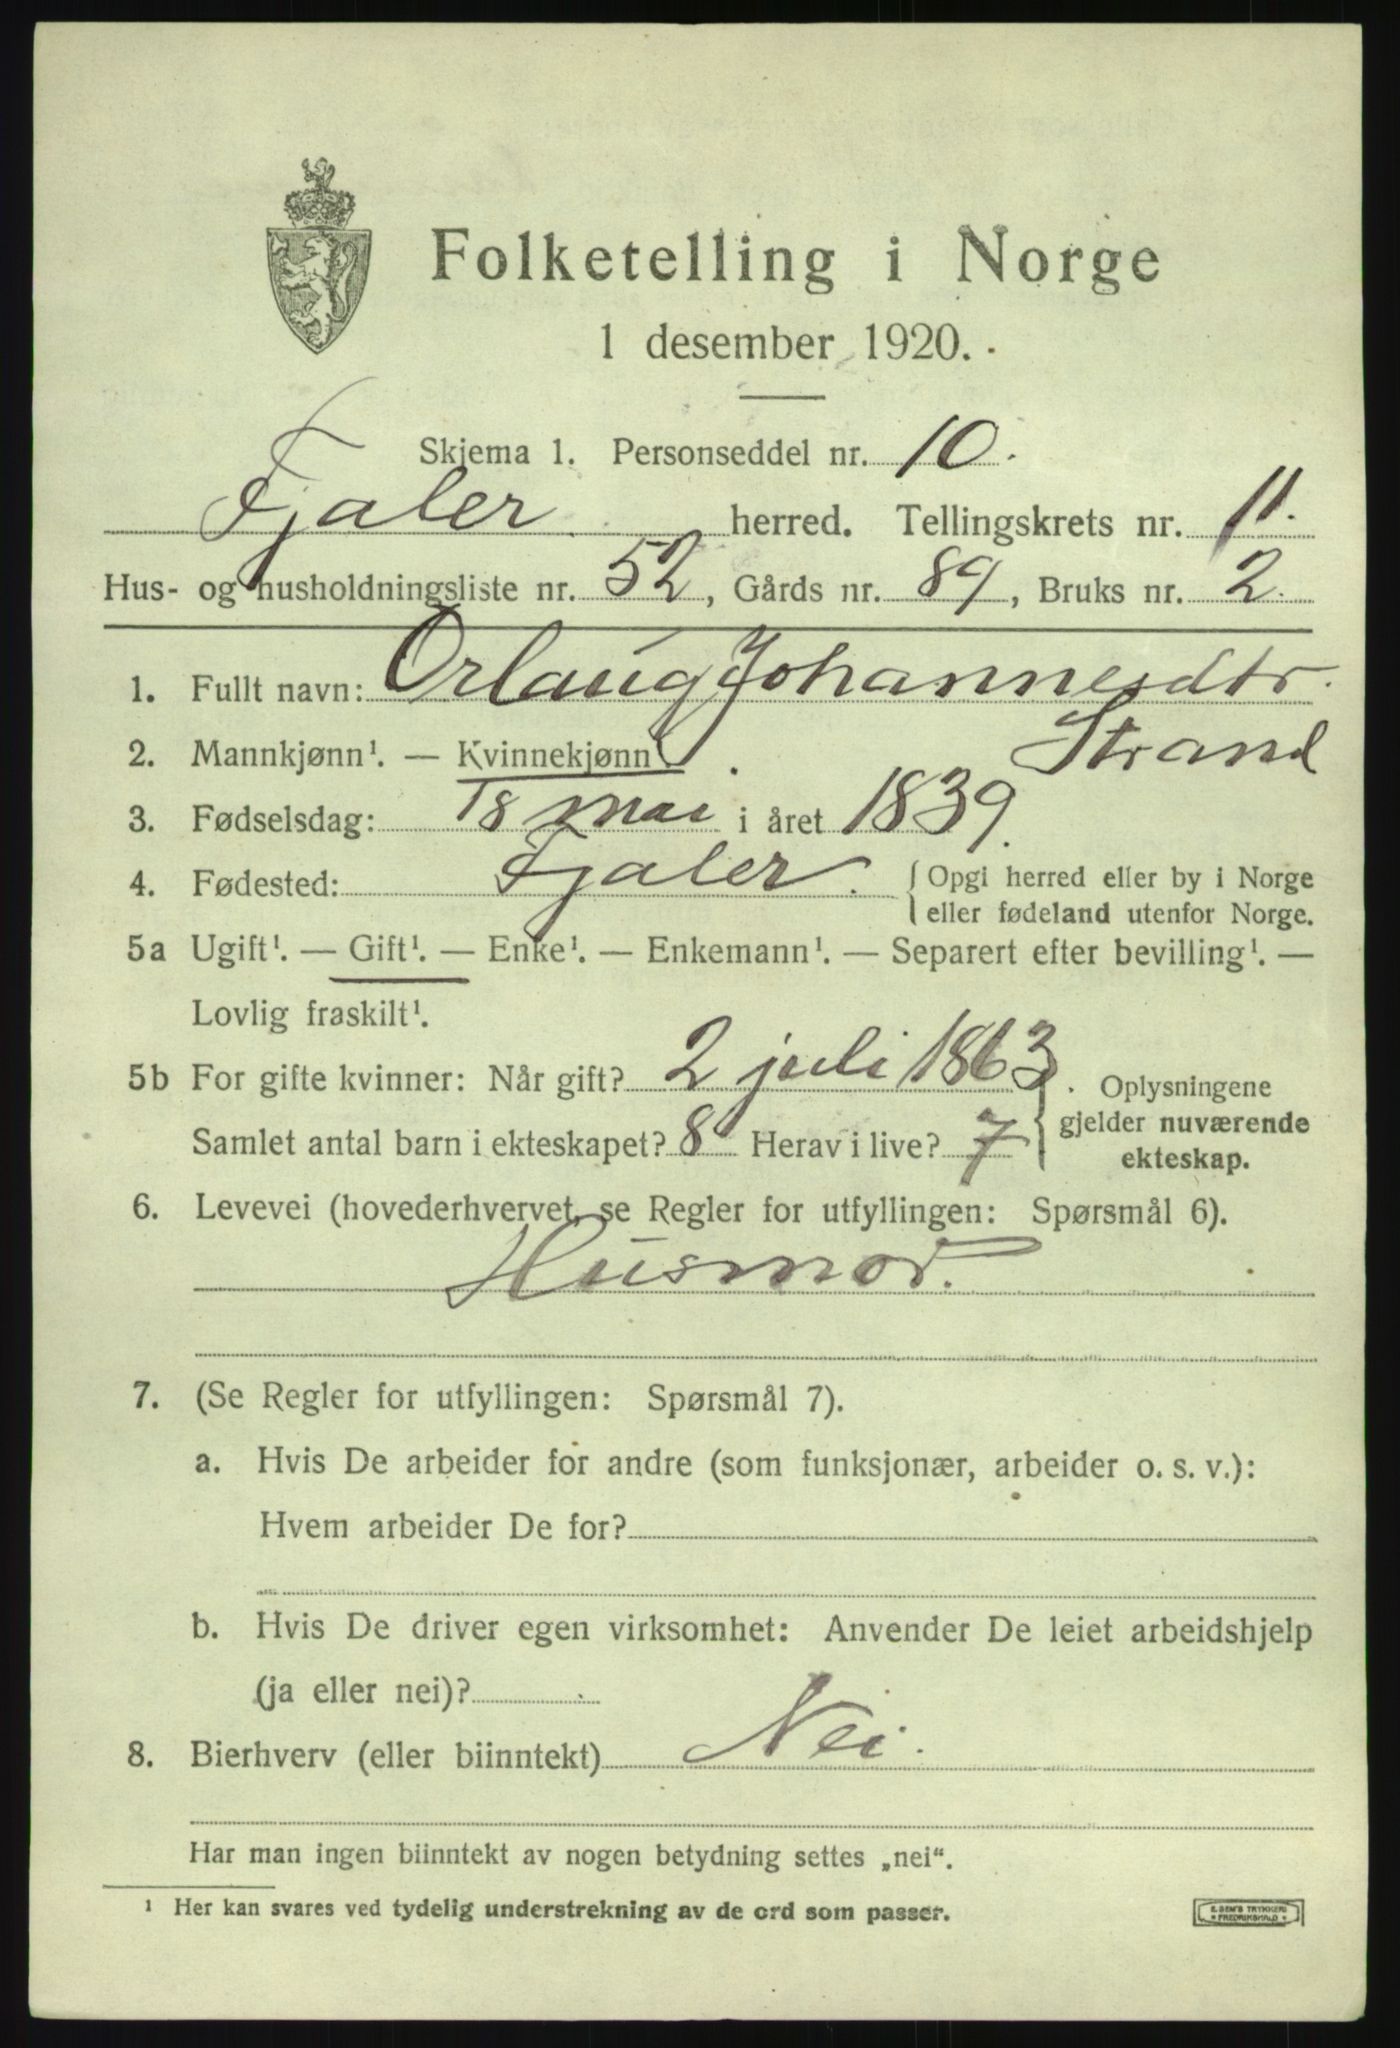 Folketelling i Norge
1 desember 1920.
Skjema 1. Personseddel nr. 10.
Fjaler herred. Tellingskrets nr. 11.
Hus- og husholdningsliste nr. 52, Gårds nr. 89, Bruks nr. 2.
1. Fullt navn: Orlaug Johannesdtr.
Strand
2. Mannkjønn¹. — Kvinnekjønn¹.
3. Fødselsdag: 18 mai i året 1839.
4. Fødested: Fjaler. { Opgi herred eller by i Norge
eller fødeland utenfor Norge.
5a Ugift¹. — Gift¹. — Enke¹. — Enkemann¹. — Separert efter bevilling¹. —
Lovlig fraskilt¹.
5b For gifte kvinner: Når gift? 2 juli 1863. Oplysningene
Samlet antal barn i ekteskapet? 8 Herav i live? 7 { gjelder nuværende
ekteskap.
6. Levevei (hovederhvervet, se Regler for utfyllingen: Spørsmål 6).
Husmor.
7. (Se Regler for utfyllingen: Spørsmål 7).
a. Hvis De arbeider for andre (som funksjonær, arbeider o. s. v.):
Hvem arbeider De for?
b. Hvis De driver egen virksomhet: Anvender De leiet arbeidshjelp
(ja eller nei)?
8. Bierhverv (eller biinntekt) Nei.
Har man ingen biinntekt av nogen betydning settes „nei“.
¹ Her kan svares ved tydelig understrekning av de ord som passer.
E. SEM'S TRYKKERI
* FREDRIKSHALD *